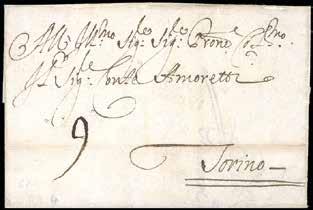 All Ill.mo Sig.e Sig.e Prone Col.mo
Il Sig.e Conte Amoretti
9
Torino